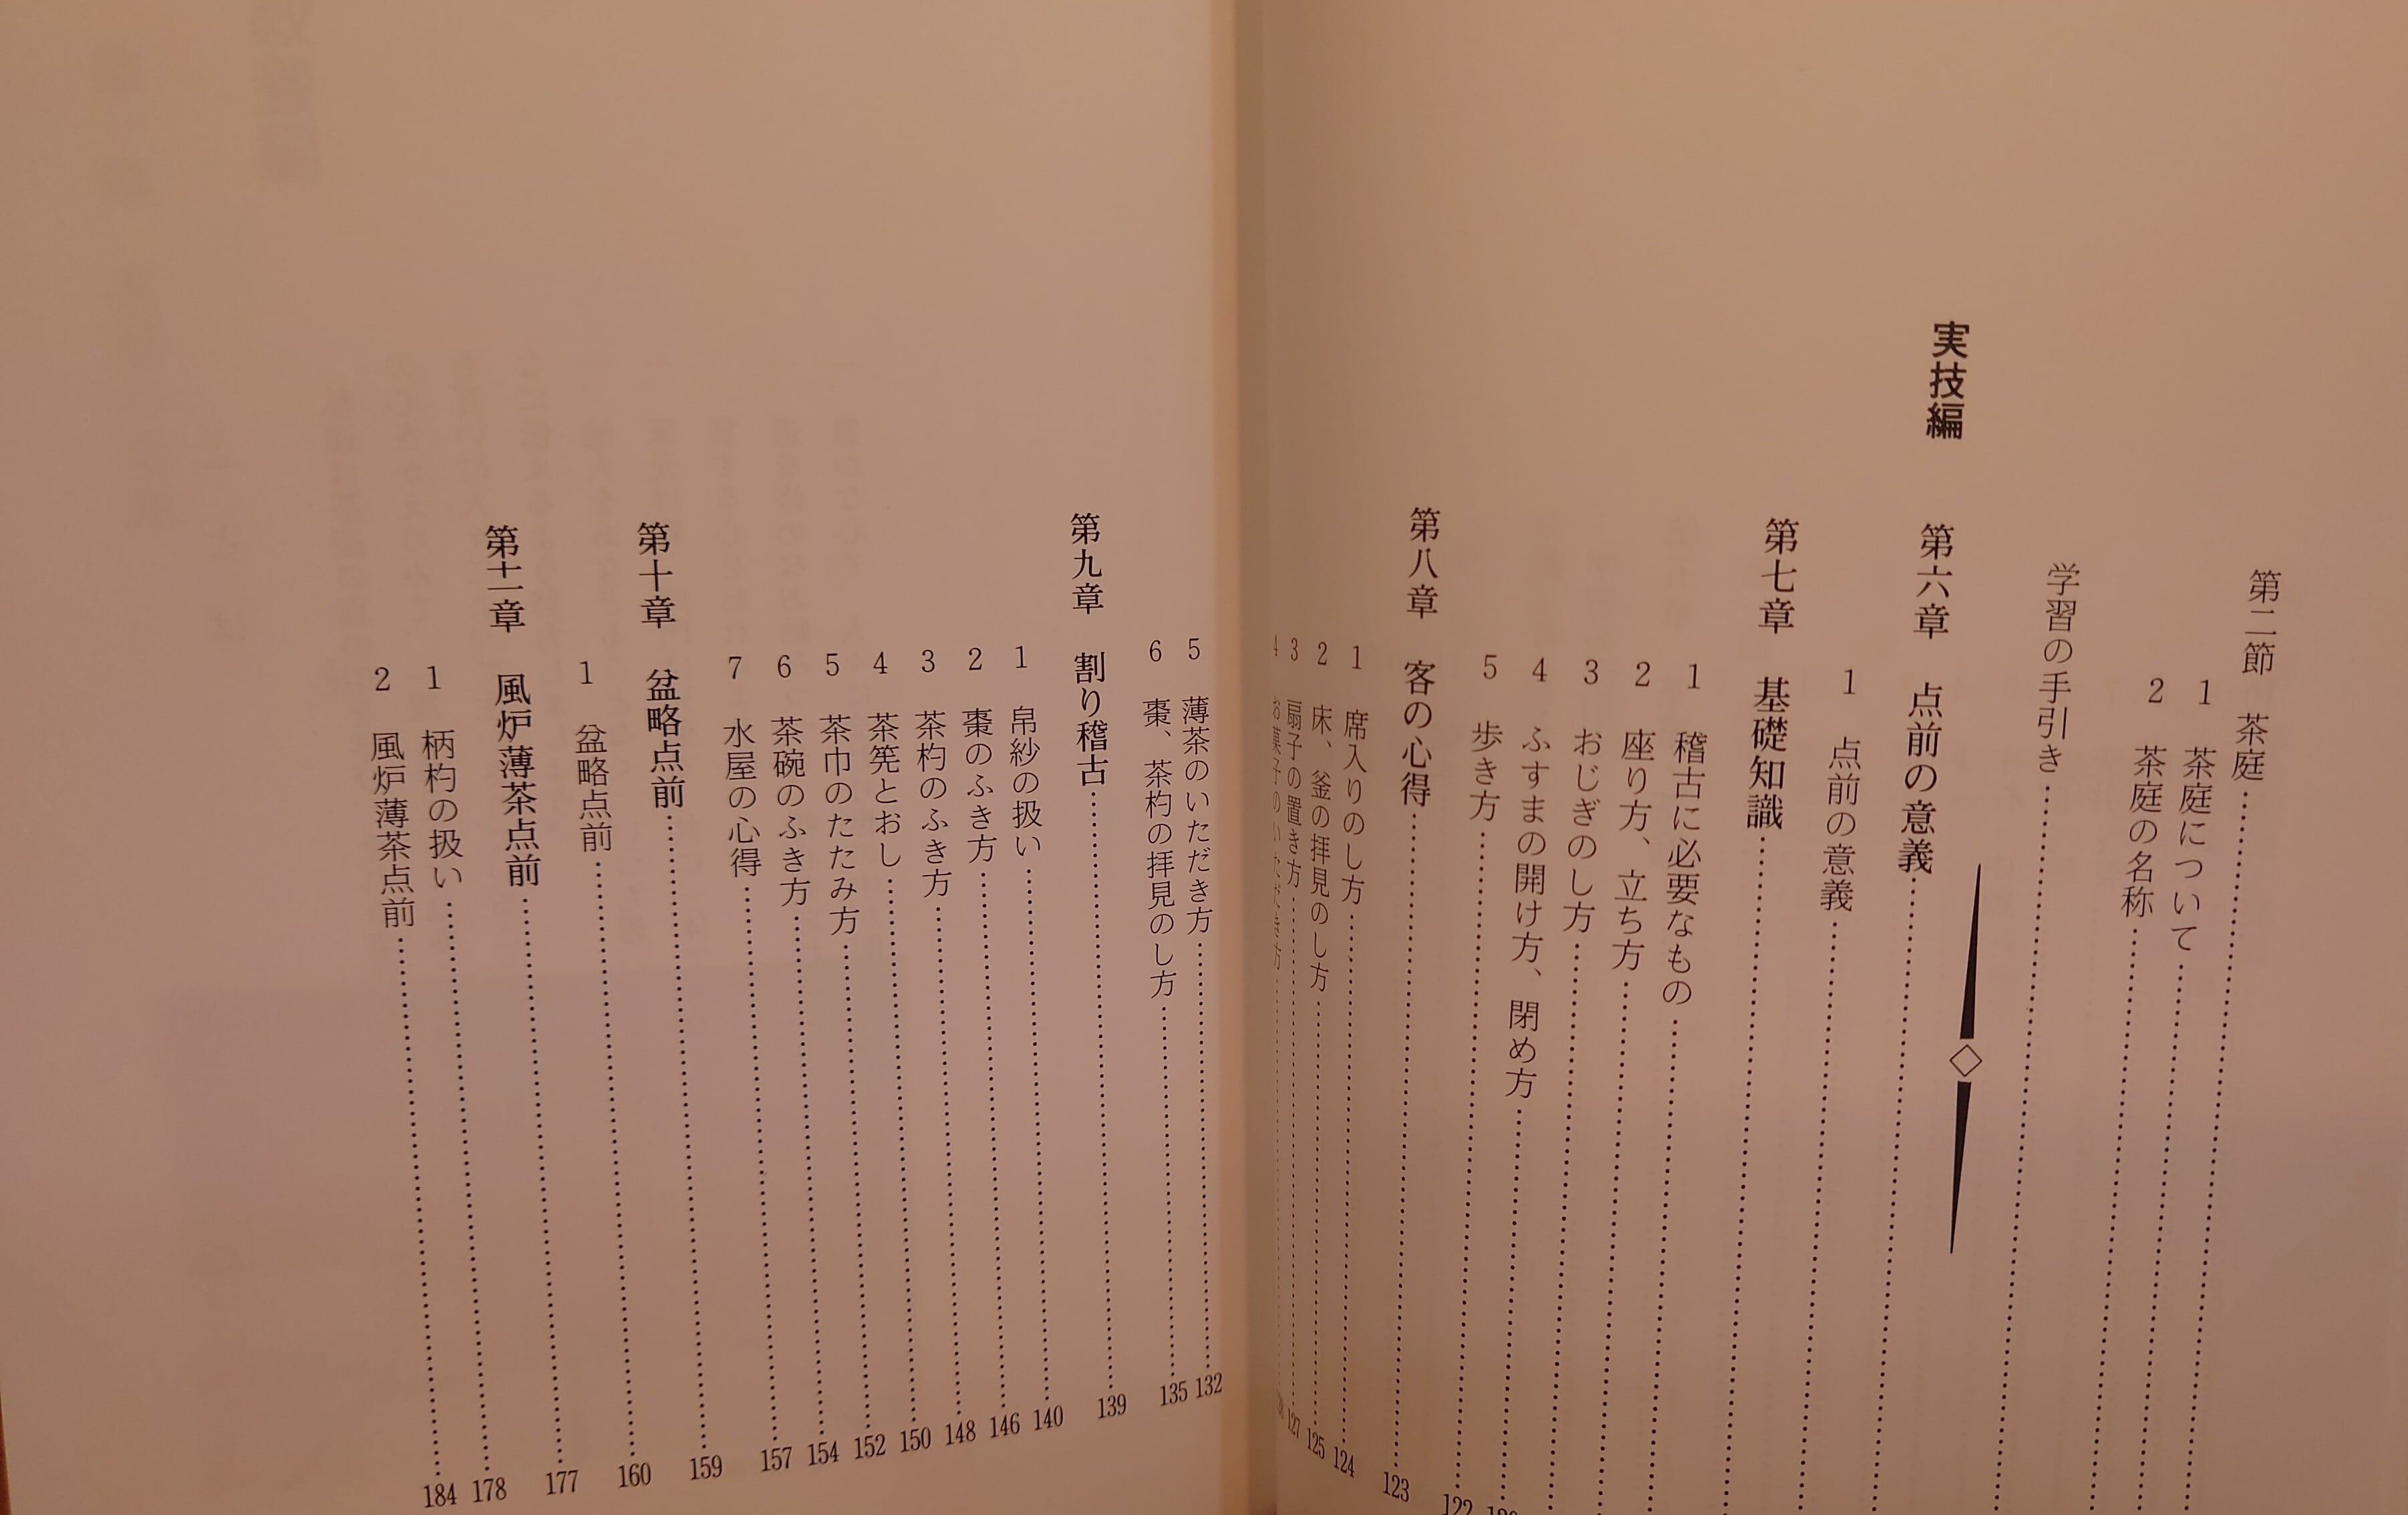 第二節　茶庭
1　茶庭について
2　茶庭の名称
学習の手引き
実技編
第六章　点前の意義
1　点前の意義
第七章　基礎知識
1　稽古に必要なもの
2　座り方、立ち方
3　おじぎのし方
4　ふすまの開け方、閉め方
5　歩き方 122
第八章　客の心得 123
1　席入りのし方 124
2　床、釜の拝見のし方 125
3　扇子の置き方 127
4　お菓子のいただき方
5　薄茶のいただき方 132
6　棗、茶杓の拝見のし方 135
第九章　割り稽古 139
1　帛紗の扱い 140
2　棗のふき方 146
3　茶杓のふき方 148
4　茶筅とおし 150
5　茶巾のたたみ方 152
6　茶碗のふき方 154
7　水屋の心得 157
第十章　盆略点前 159
1　盆略点前 160
第十一章　風炉薄茶点前 177
1　柄杓の扱い 178
2　風炉薄茶点前 184